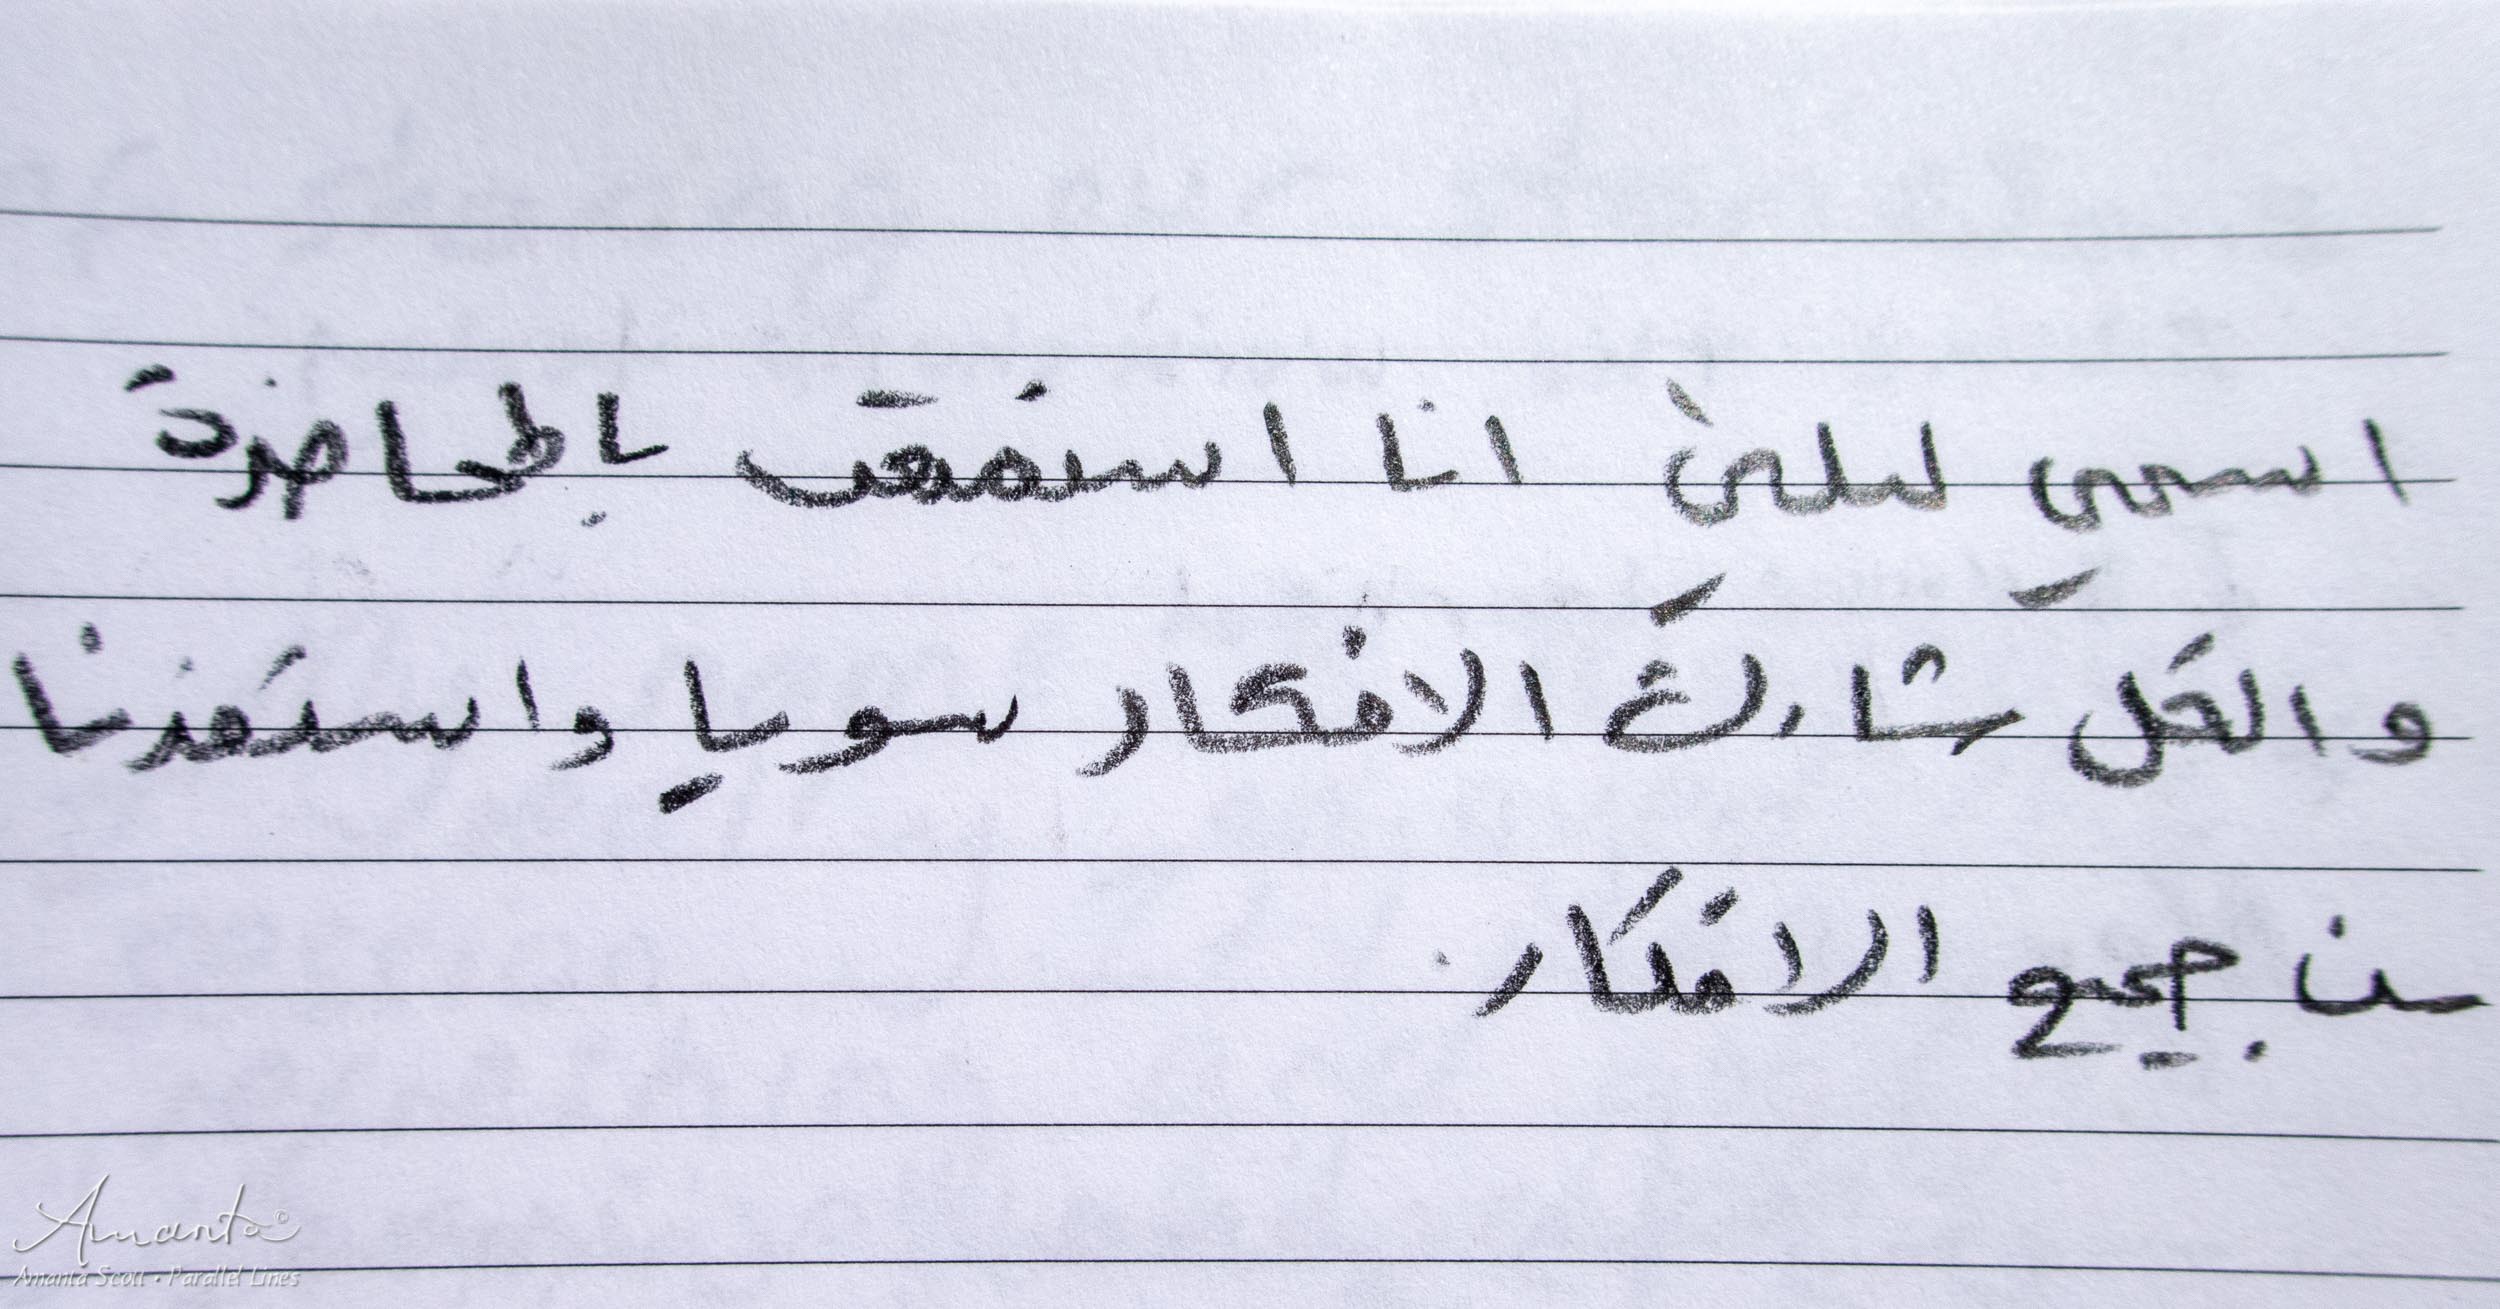 اسمي ليلى انا استمتعت بالمحاضرة
والكل شارك الافكار سويا واستفدنا
من جميع الافكار.
Amanta©
Amanta Scott • Parallel Lines